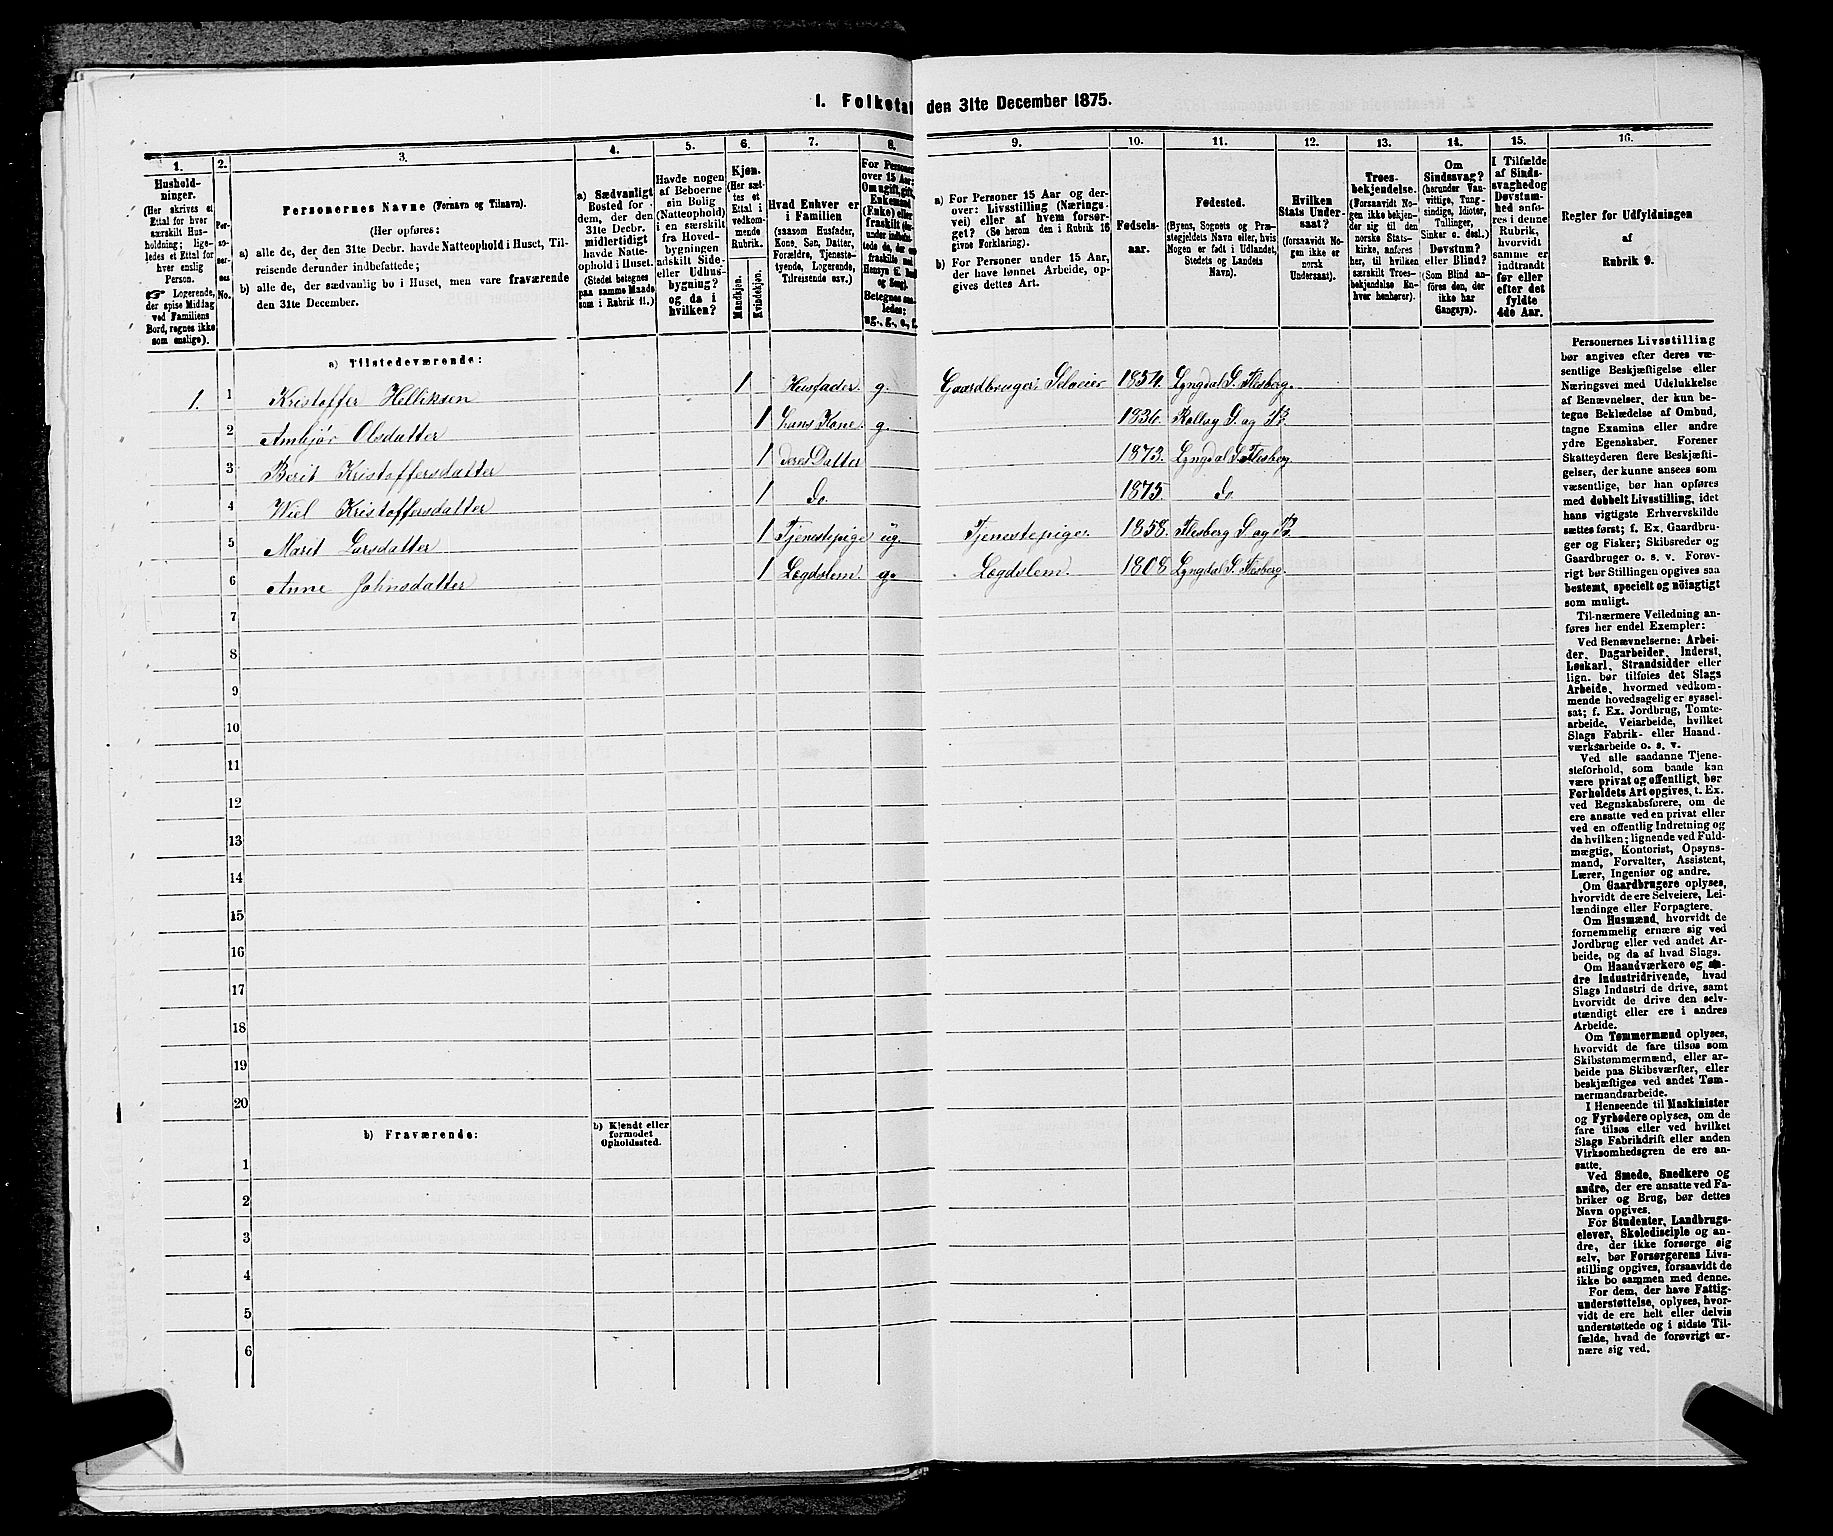 1. Folketal den 31te December 1875.
1. 2. 3. 4. 5. 6. 7. 8. 9. 10. 11. 12. 13. 14. 15. 16.
Hushold-
ninger.
(Her skrives et
Ettal for hver
særskilt Hus-
holdning; lige-
ledes et Ettal for
hver enslig
Person.
☞ Logerende,
der spise Middag
ved Familiens
Bord, regnes ikke
som enslige).
Per-
so-
ner-
nes
No.
Personernes Navne (Fornavn og Tilnavn).
(Her opføres:
a) alle de, der den 31te Decbr. havde Natteophold i Huset, Til-
reisende derunder indbefattede;
b) alle de, der sædvanlig bo i Huset, men vare fraværende
den 31te December.
a) Sædvanligt
Bosted for
dem, der den
31te Decbr.
midlertidigt
havde Natte-
ophold i Huset.
(Stedet betegnes
paa samme Maade
som i Rubrik 11.)
Havde nogen
af Beboerne
sin Bolig
(Natteophold)
i en særskilt
fra Hoved-
bygningen
adskilt Side-
eller Udhus-
bygning?
og da i
hvilken?
Kjøn.
(Her sæt-
tes et
Ettal i
vedkom-
mende
Rubrik.
Mandkjøn.
Kvindekjøn.
Hvad Enhver er
i Familien
(saasom Husfader,
Kone, Søn, Datter,
Forældre, Tjeneste-
tyende, Logerende,
Tilreisende osv.)
For Personer
over 15 Aar:
Om ugift, gift,
Enkemand
(Enke) eller
fraskilt
Betegnes saa-
ledes:
ug., g., e., f.
a) For Personer 15 Aar og der-
over: Livsstilling (Nærings-
vei) eller af hvem forsør-
get? (Se herom den i Rubrik 16
givne Forklaring).
b) For Personer under 15 Aar,
der have lønnet Arbeide, op-
gives dettes Art.
Fødsels-
aar.
Fødested.
(Byens, Sognets og Præ-
stegjeldets Navn eller, hvis
Nogen er født i Udlandet,
Stedets og Landets
Navn).
Hvilken
Stats Under-
saat?
(forsaavidt No-
gen ikke er
norsk
Undersaat).
Troes-
bekjendelse.
(Forsaavidt No-
gen ikke bekjen-
der sig til den
norske Stats-
kirke, anføres
her, til hvilken
særskilt Troes-
bekjendelse En-
hver henhører).
Om
Sindssvag?
(herunder Van-
vittige, Tung-
sindige, Idioter,
Tullinger,
Sinker o. desl.)
Døvstum?
eller Blind?
(Som Blind an-
føres den, der
ikke har
Gangsyn).
I Tilfælde
af Sinds-
svaghed og
Døvstum-
hed anfø-
res i denne
Rubrik,
hvorvidt
samme er
indtraadt
før eller
efter det
fyldte
4de Aar.
Regler for Udfyldningen
af
Rubrik 9.
a) Tilstedeværende:
1. 1 Kristoffer Helliksen 1 Husfader g. Gaardbruger, Selveier 1854. Lyngdal S. Flesberg.
2 Ambjør Olsdatter 1 hans Kone. g. 1836. Rollag S. og P.
3 Berit Kristoffersdatter 1 deres Datter 1873. Lyngdal S. Flesberg
4 Wiel Kristoffersdatter 1 do. 1875. do
5 Marit Larsdatter 1 Tjenestepige ug. Tjenestepige. 1858. Flesberg S. og P.
6 Anne Johnsdatter 1 Lægdslem. g. Lægdslem 1808 Lyngdal S. Flesberg.
7
8
9
10
11
12
13
14
15
16
17
18
19
20
b) Fraværende:
b) Kjendt eller
formodet
Opholdssted.
1
2
3
4
5
6
Personernes Livsstilling
bør angives efter deres væ-
sentlige Beskjæftigelse eller
Næringsvei med Udelukkelse
af Benævnelser, der kun be-
tegne Beklædelse af Ombud,
tagne Examina eller andre
ydre Egenskaber. Forener
Skatteyderen flere Beskjæfti-
gelser, der kunne ansees som
væsentlige, bør han opføres
med dobbelt Livsstilling, idet
hans vigtigste Erhvervskilde
sættes først; f. Ex. Gaardbru-
ger og Fisker; Skibsreder og
Gaardbruger o. s. v. Forøv-
rigt bør Stillingen opgives saa
bestemt, specielt og nöiagtigt
som muligt.
Til nærmere Veiledning an-
føres her endel Exempler:
Ved Benævnelserne: Arbei-
der, Dagarbeider, Inderst,
Løskarl, Strandsidder eller
lign. bør tilføies det Slags
Arbeide, hvormed vedkom-
mende hovedsagelig er syssel-
sat; f. Ex. Jordbrug, Tomte-
arbeide, Veiarbeide, hvilket
Slags Fabrik- eller Haand-
værksarbeide o. s. v.
Ved alle saadanne Tjene-
steforhold, som baade kan
være privat og offentligt, bør
Forholdets Art opgives, t. Ex.
ved Regnskabsførere, om de
ere ansatte ved en privat eller
ved en offentlig Indretning og
da hvilken; lignende ved Fuld-
mægtig, Kontorist, Opsyns-
mand, Forvalter, Assistent,
Lærer, Ingeniør og andre.
Om Gaardbrugere oplyses,
hvorvidt de ere Selveiere, Lei-
lændinge eller Forpagtere.
Om Husmænd, hvorvidt de
fornemmelig ernære sig ved
Jordbrug eller ved andet Ar-
beide, og da af hvad Slags.
Om Haandværkere og an-
dre Industridrivende, hvad
Slags Industri de drive, samt
hvorvidt de drive den selv-
stændigt eller ere i andres
Arbeide.
Om Tømmermænd oplyses,
hvorvidt de fare tilsøs som
Skibstømmermænd, eller ar-
beide paa Skibsværfter, eller
beskjæftiges ved andet Tøm-
mermandsarbeide.
I Henseende til Maskinister
og Fyrbødere oplyses, om de
fare tilsøs eller ved hvilket
Slags Fabrikdrift eller anden
Virksomhedsgren de ere an-
satte.
Ved Smede, Snedkere og
andre, der ere ansatte ved Fa-
briker og Brug, bør dettes
Navn opgives.
For Studenter, Landbrugs-
elever, Skoledisciple og an-
dre, der ikke forsørge sig
selv, bør Forsørgerens Livs-
stilling opgives, forsaavidt de
ikke bo sammen med denne.
For dem, der have Fattig-
understøttelse, oplyses, hvor-
vidt de ere helt eller delvis
understøttede og i sidste Til-
fælde, hvad de forøvrigt er-
nære sig ved.